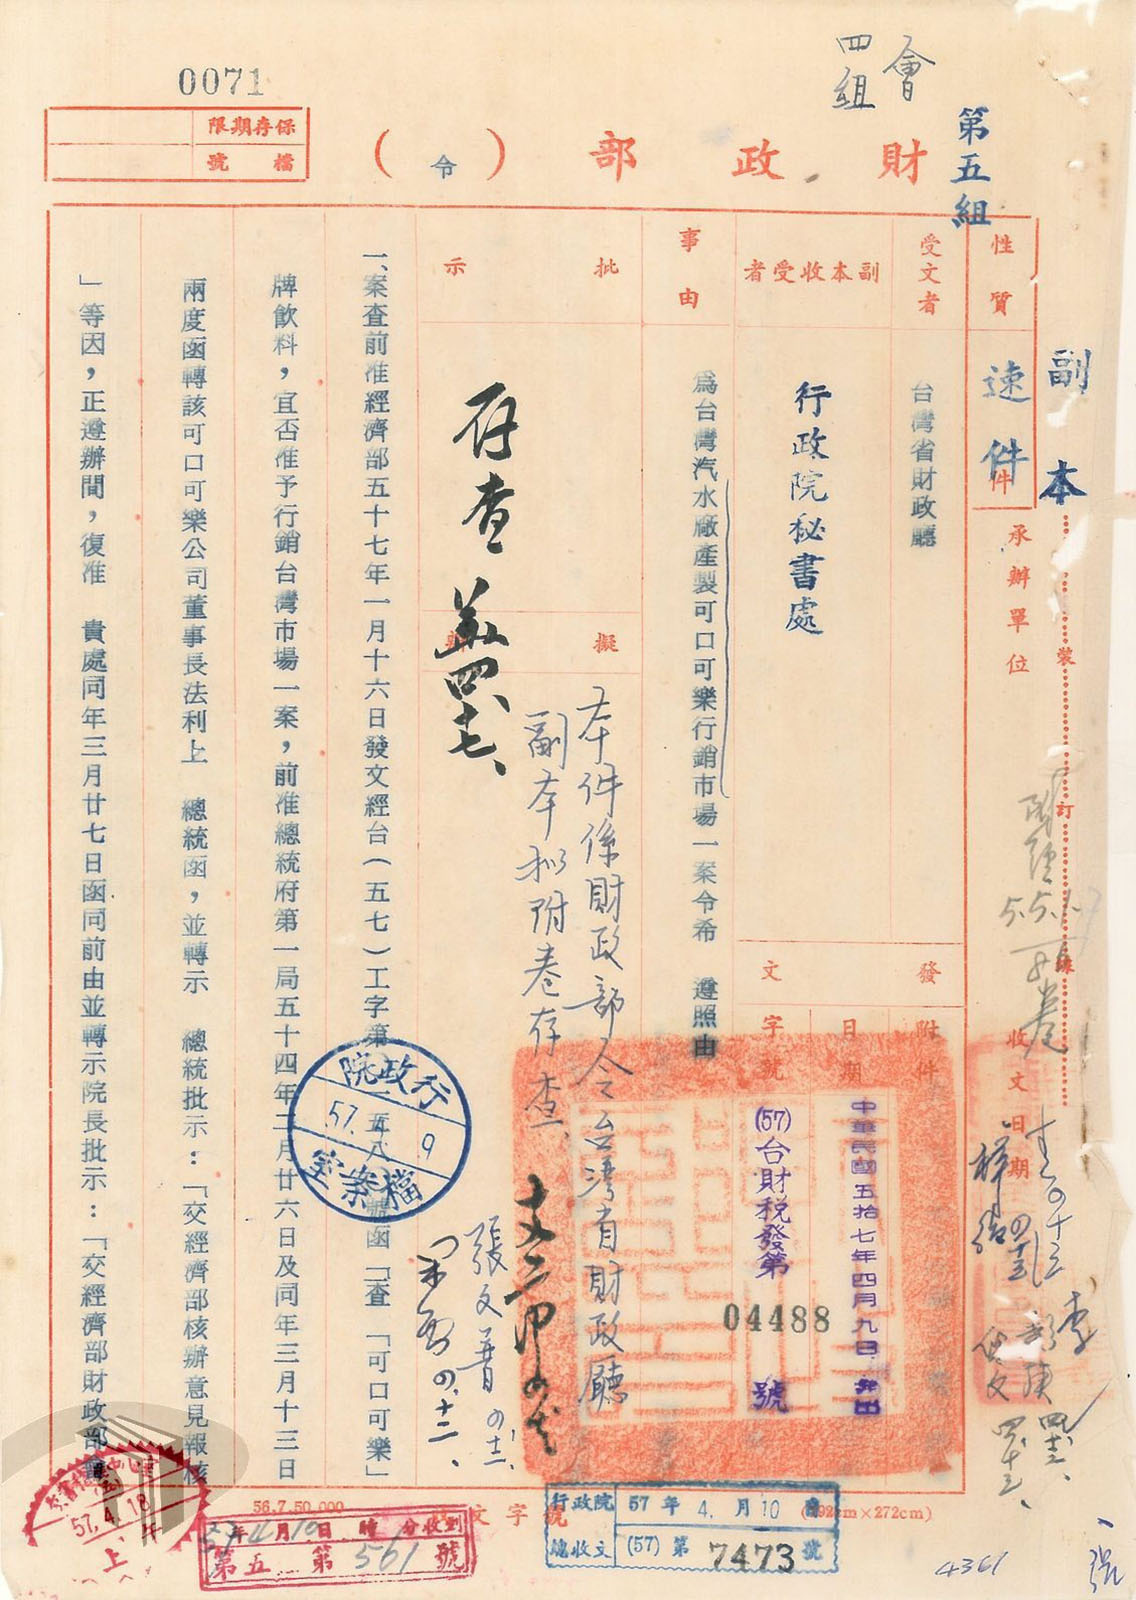 0071
會
四組
第五組
保存期限
檔號
財政部(令)
副本
性質
速件
承辦單位
受文者
台灣省財政廳
副本收受者
行政院秘書處
事由
爲台灣汽水廠產製可口可樂行銷市場一案令希　遵照由
發文
附件
日期
中華民國五拾七年四月九日
字號
(57)台財稅發第
04488
號
批示
存查
擬辦
本件係財政部令台灣省財政廳
副本擬附卷存查
張文普
一、案查前准經濟部五十七年一月十六日發文經台(五七)工字第一五八號函「查「可口可樂」
牌飲料，宜否准予行銷台灣市場一案，前准總統府第一局五十四年二月廿六日及同年三月十三日
兩度函轉該可口可樂公司董事長法利上　總統函，並轉示　總統批示：「交經濟部核辦意見報核
」等因，正遵辦間，復准　貴處同年三月廿七日函同前由並轉示院長批示：「交經濟部財政部
裝
訂
線
收文日期
行政院
57. 9
檔案室
57.4.18
上
56.7.50.000
收文字號
57年4月10日 時 分收到
第五 第561號
行政院 57年4.月10日
總收文 (57)第7473號
4361